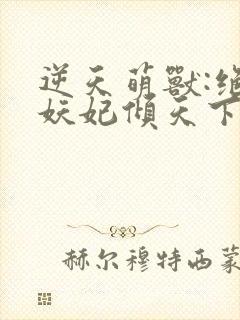 逆天萌獸:绝
妖妃傾天下
赫尔穆特西蒙